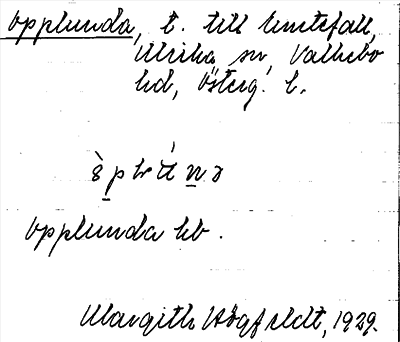 Opplunda, t. till Knutsfall,
Ulrika sn, Valkebo
hd, Österg. l.
Opplunda kb.
Margith Högfeldt, 1929.